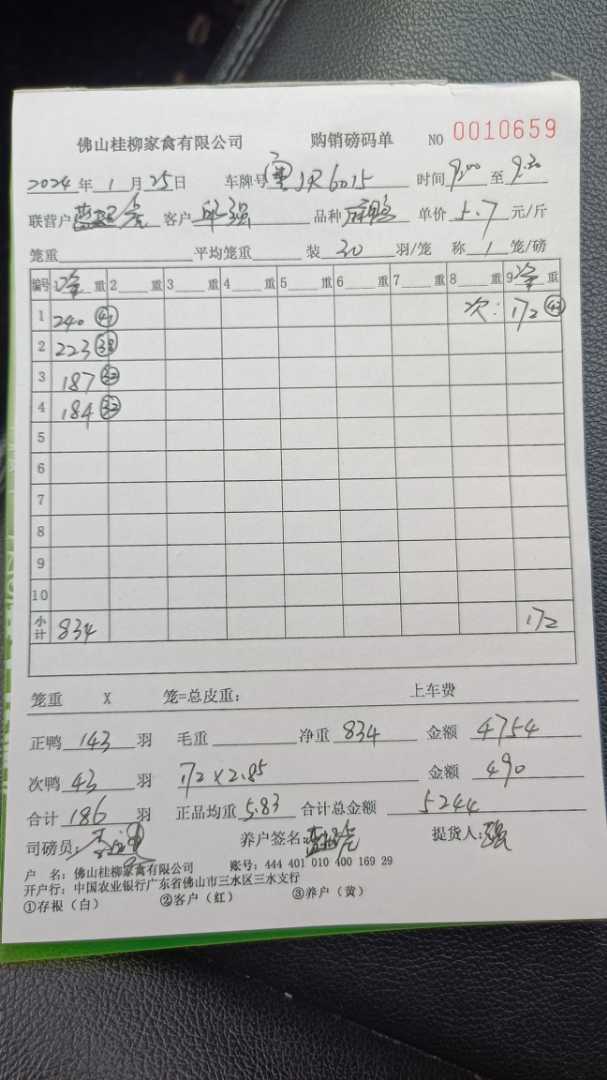 佛山桂柳家禽有限公司 购销磅码单 NO 0010659
2024年 1 月 25日 车牌号 粤JR6015 时间 9:00 至 9:30
联营户 客户 邱强 品种 麻鸭 单价 5.7 元/斤
笼重 平均笼重 装 30 羽/笼 称 1 笼/磅
编号 净重 2 重 3 重 4 重 5 重 6 重 7 重 8 重 9净重
1 240 ㊶ 次: 172 ㊸
2 223 ㊳
3 187 ㉜
4 184 ㉜
5
6
7
8
9
10
小计 834 172
笼重 X 笼=总皮重: 上车费
正鸭 143 羽 毛重 净重 834 金额 4754
次鸭 43 羽 172×2.85 金额 490
合计 186 羽 正品均重 5.83 合计总金额 5244
司磅员: 养户签名: 提货人: 强
户 名: 佛山桂柳家禽有限公司 账号: 444 401 010 400 169 29
开户行: 中国农业银行广东省佛山市三水区三水支行
①存根（白） ②客户（红） ③养户（黄）